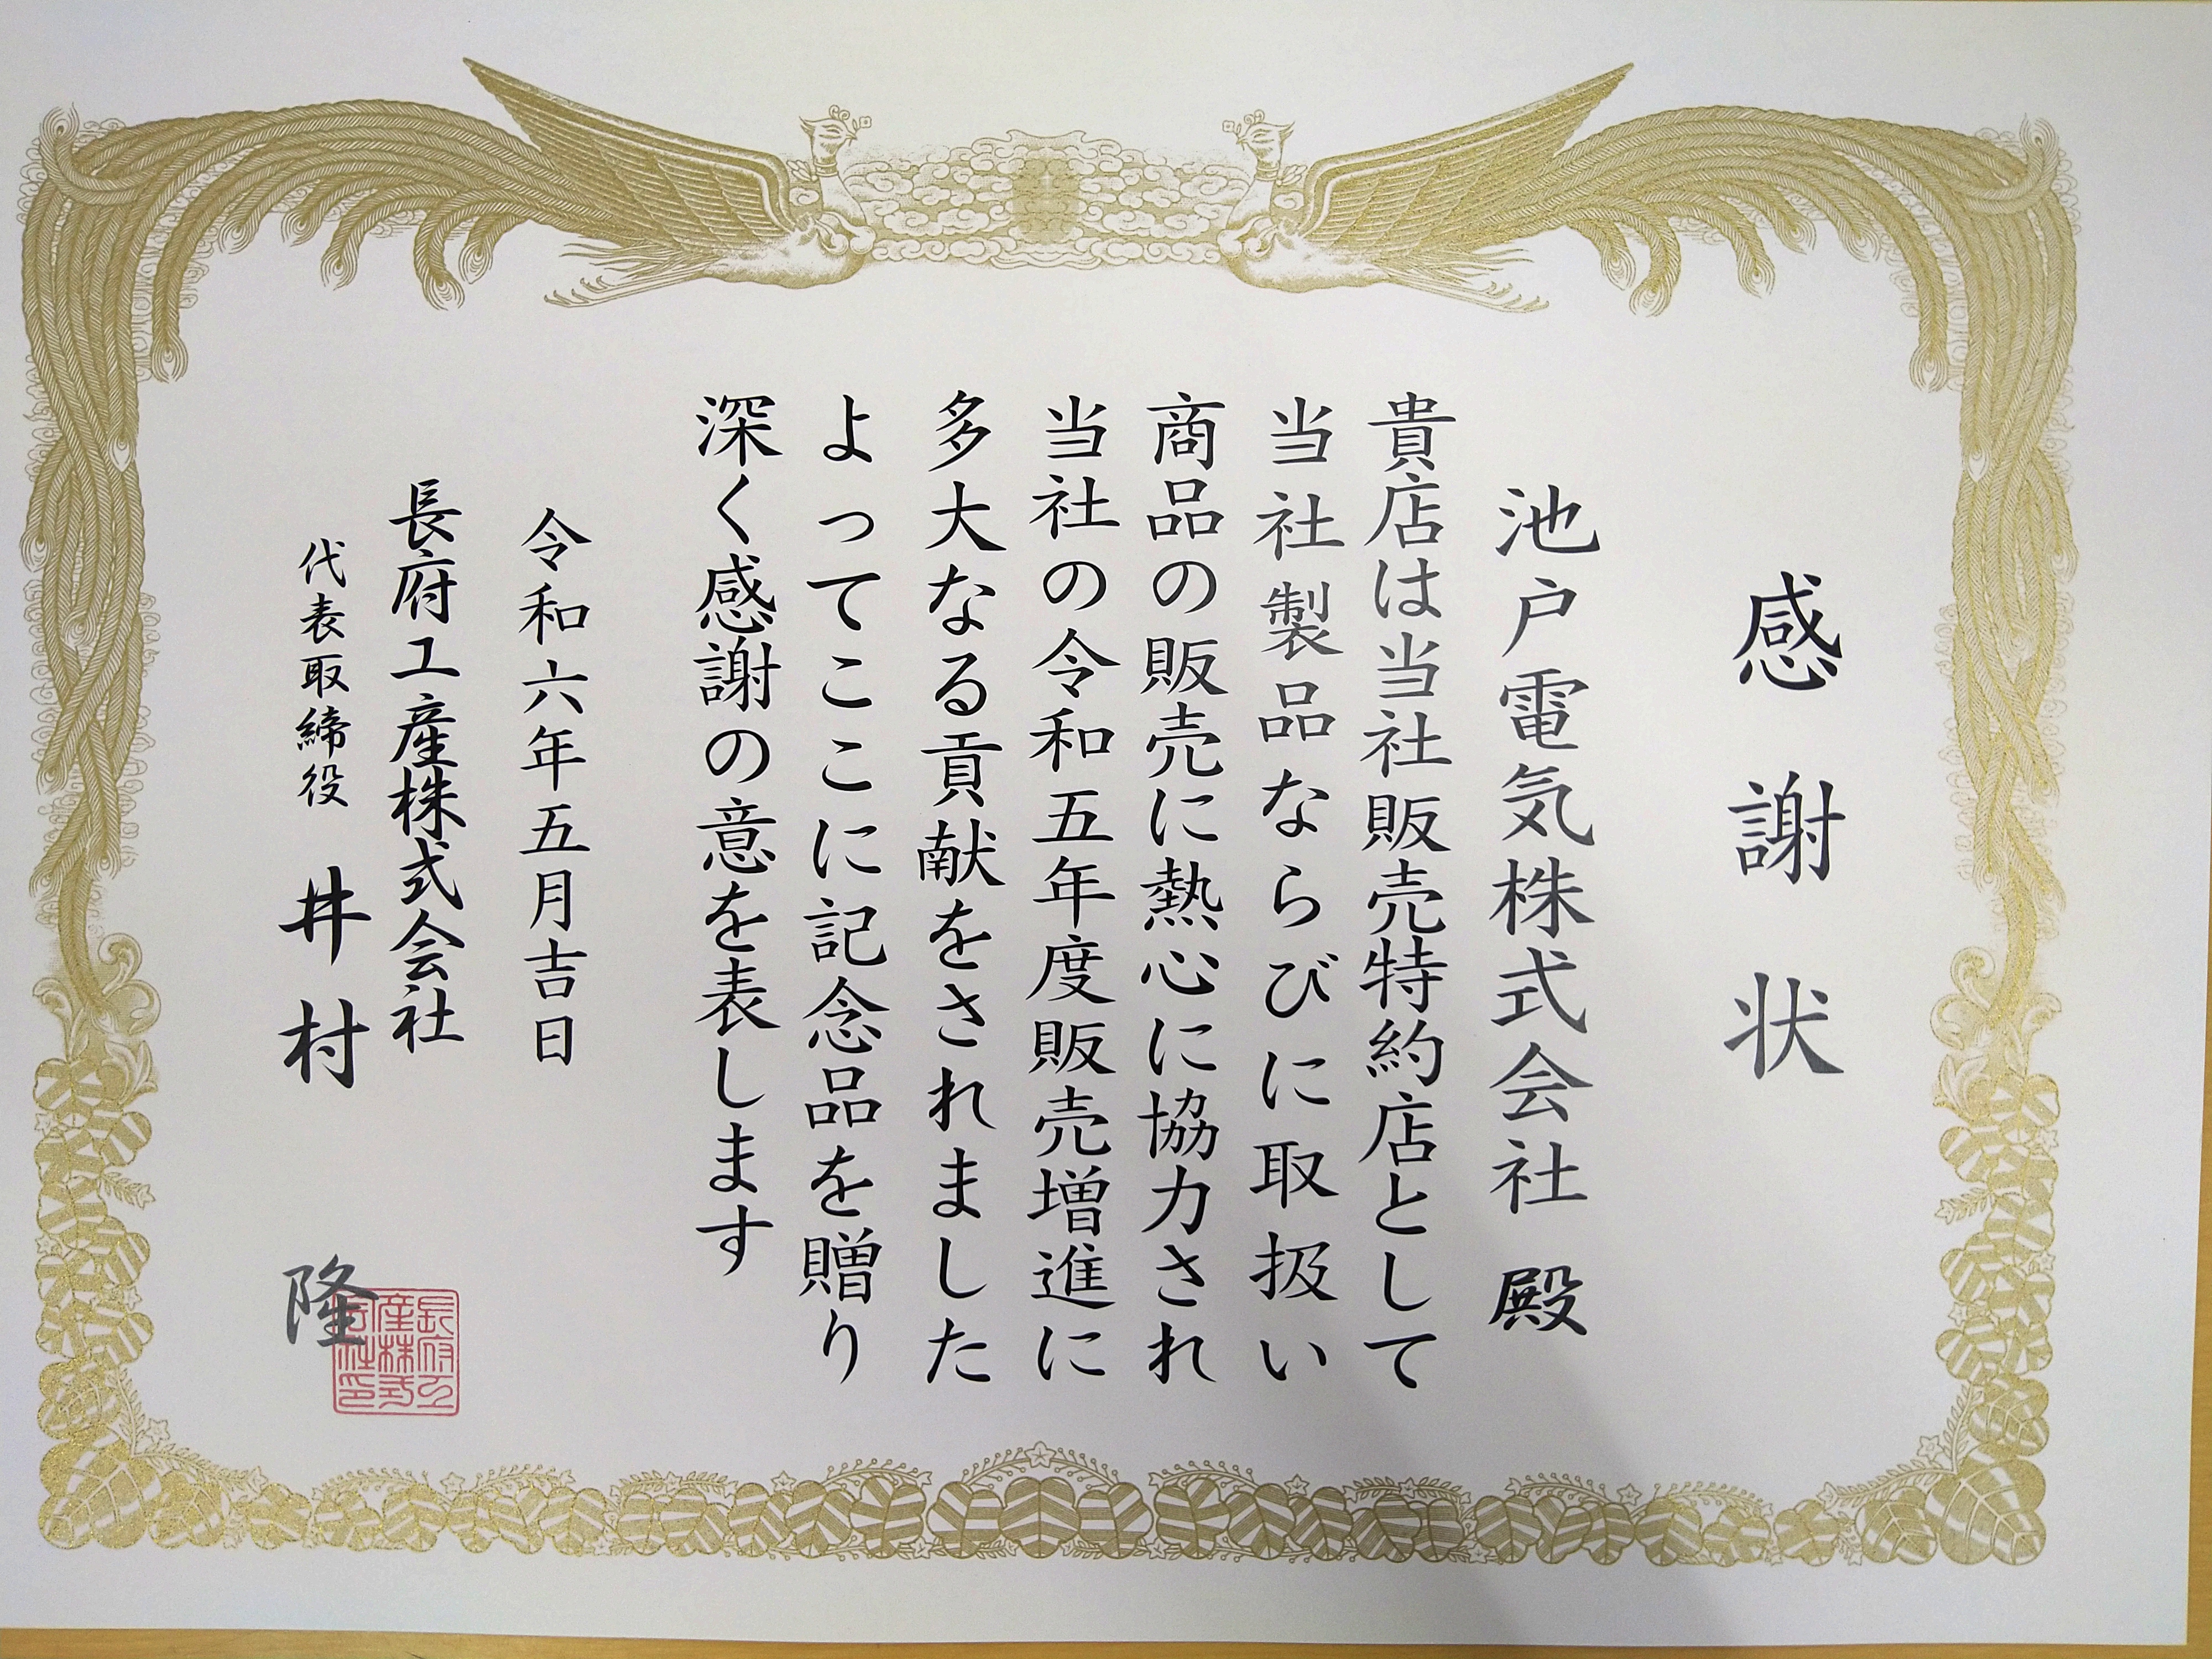 感謝状
池戸電気株式会社 殿
貴店は当社販売特約店として
当社製品ならびに取扱い
商品の販売に熱心に協力され
当社の令和五年度販売増進に
多大なる貢献をされました
よってここに記念品を贈り
深く感謝の意を表します
令和六年五月吉日
長府工産株式会社
代表取締役 井村 隆
長府工産株式会社印